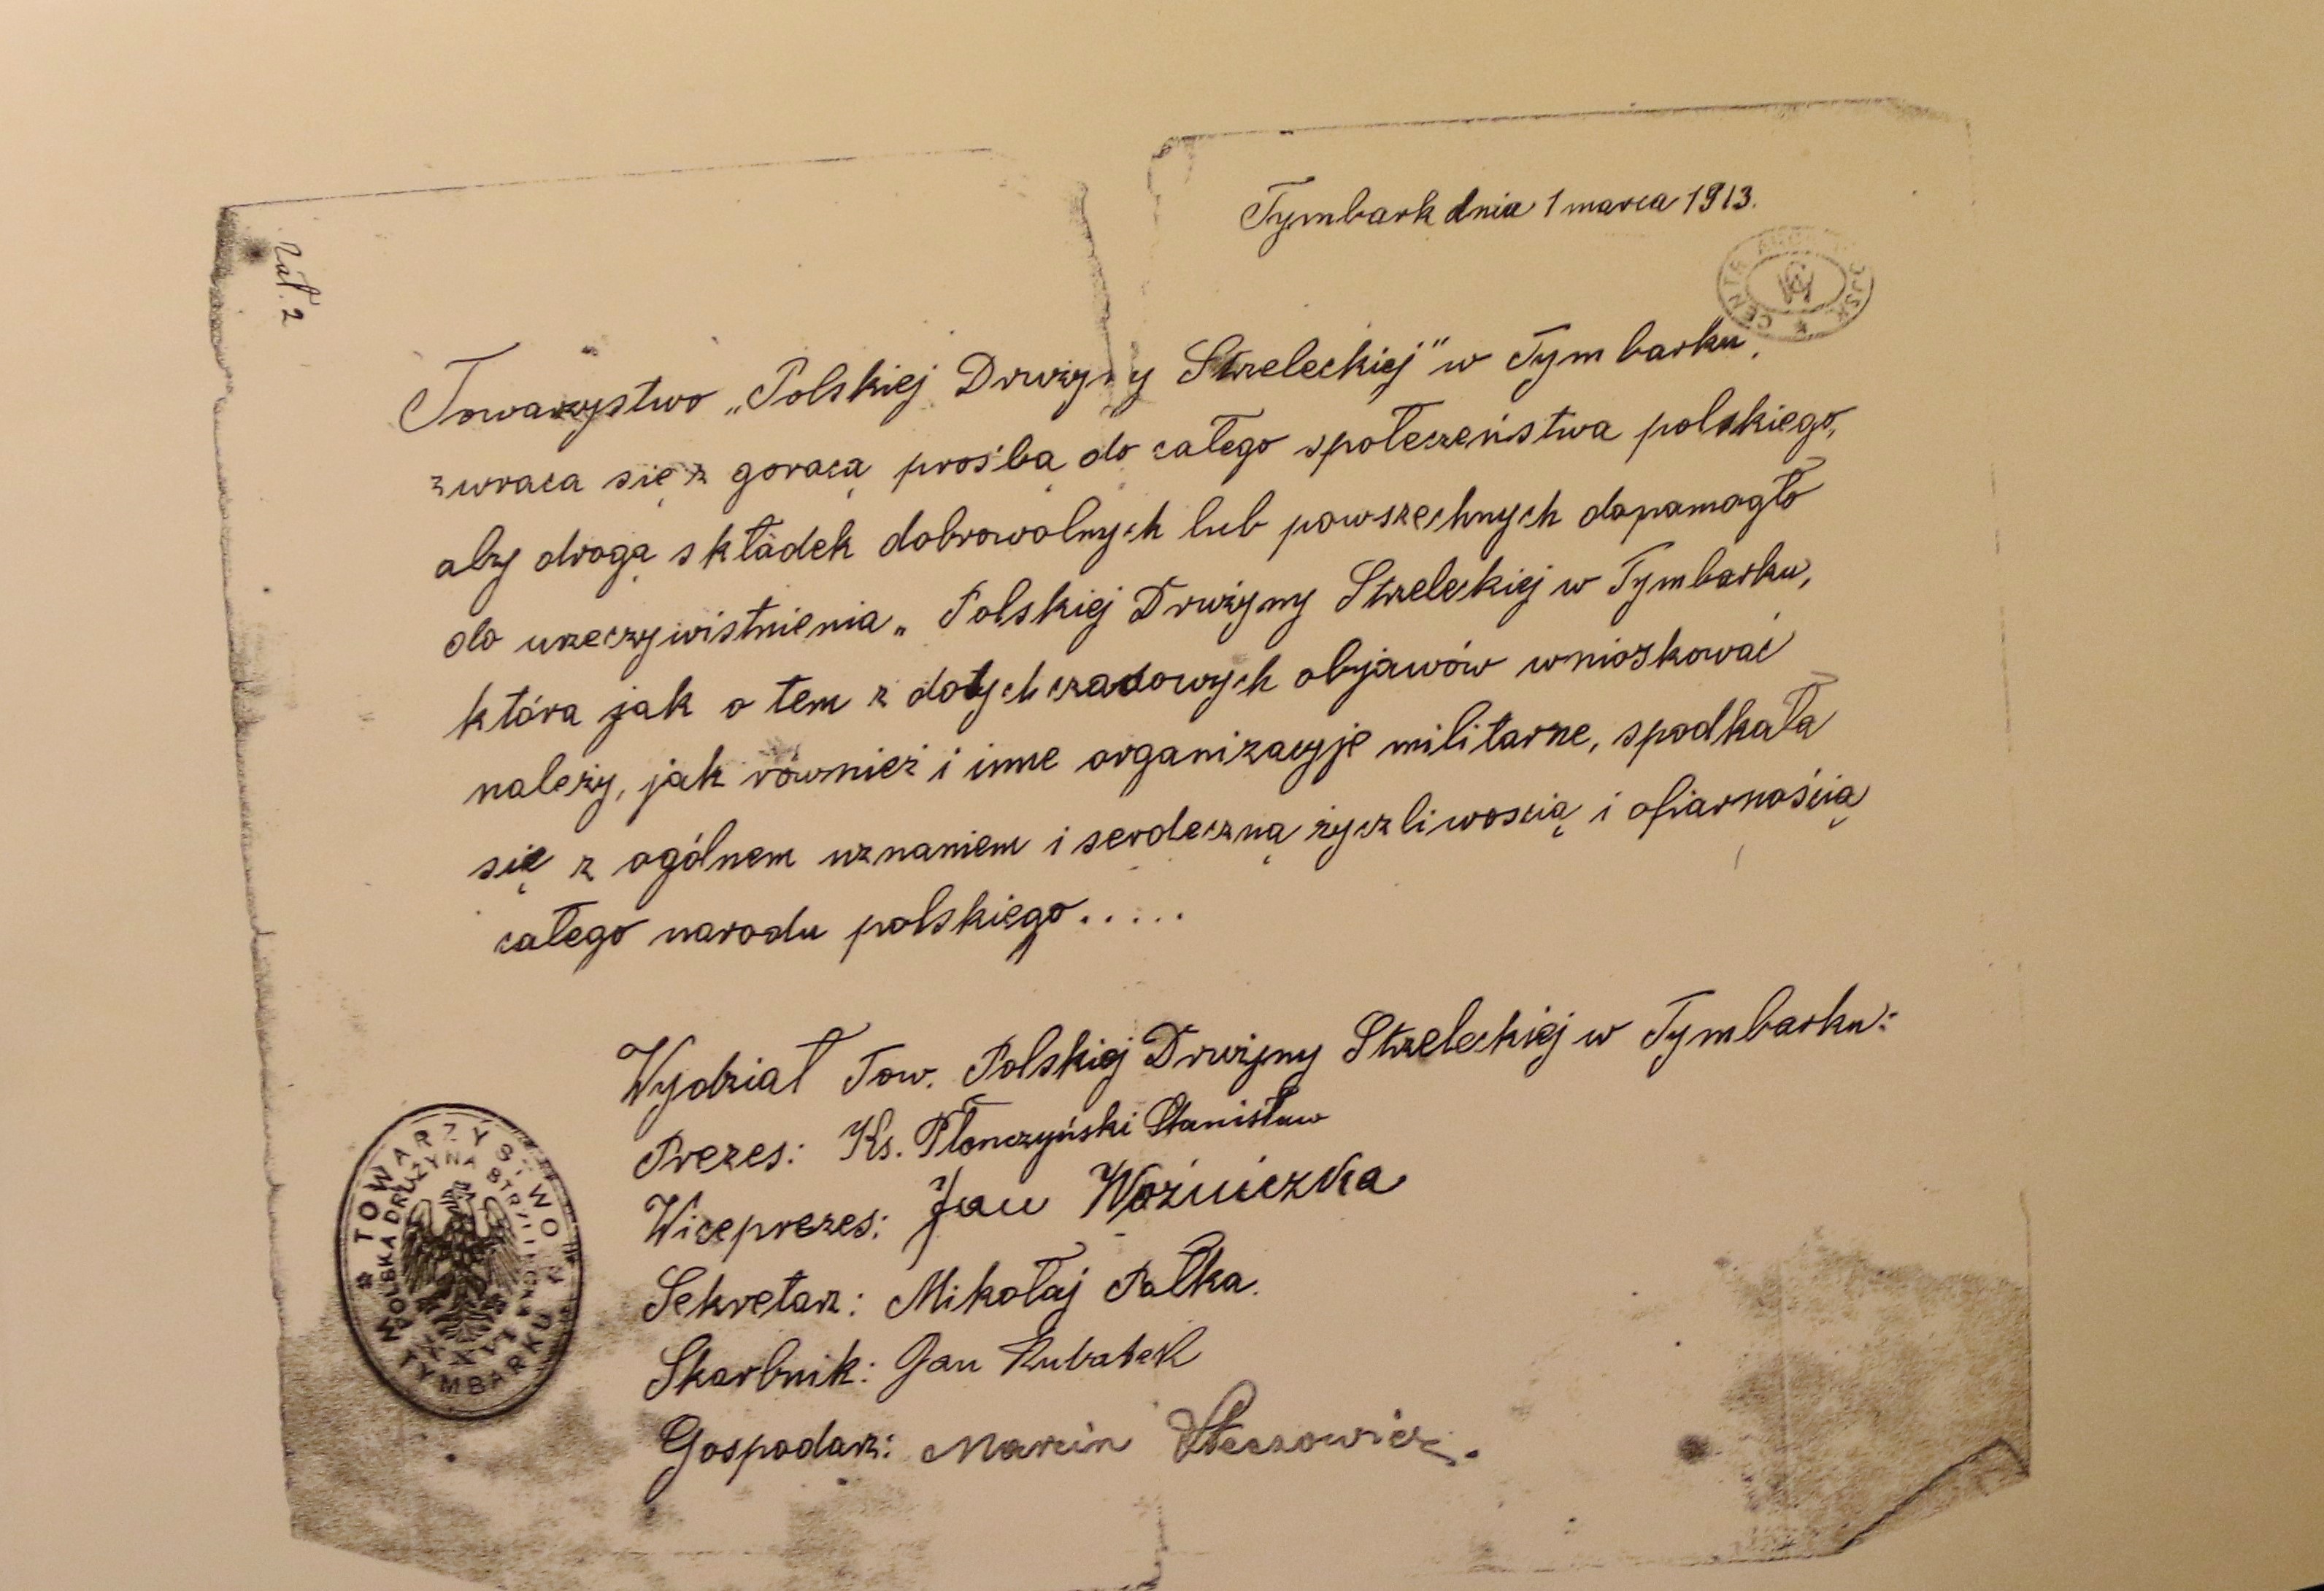 Tymbark dnia 1 marca 1913.
Zał. 2
Towarzystwo „Polskiej Drużyny Strzeleckiej" w Tymbarku,
zwraca się z goracą prośbą do całego społeczeństwa polskiego,
aby drogą składek dobrowolnych lub powszechnych dopamogło
do urzeczywistnienia „Polskiej Drużyny Strzeleckiej w Tymbarku,
która jak o tem z dotychczasowych objawów wnioskować
należy, jak również i inne organizacyje militarne, spodkała
się z ogólnem uznaniem i serdeczną życzliwoscią i ofiarnością
całego narodu polskiego.....
Wydział Tow. Polskiej Drużyny Strzeleckiej w Tymbarku:
Prezes: Ks. Płonczyński Stanisław
Wiceprezes: Jan Woźniczka
Sekretarz: Mikołaj Pałka.
Skarbnik: Jan Kubatek
Gospodarz: Marcin
TOWARZYSTWO
POLSKA DRUŻYNA STRZELECKA
W TYMBARKU